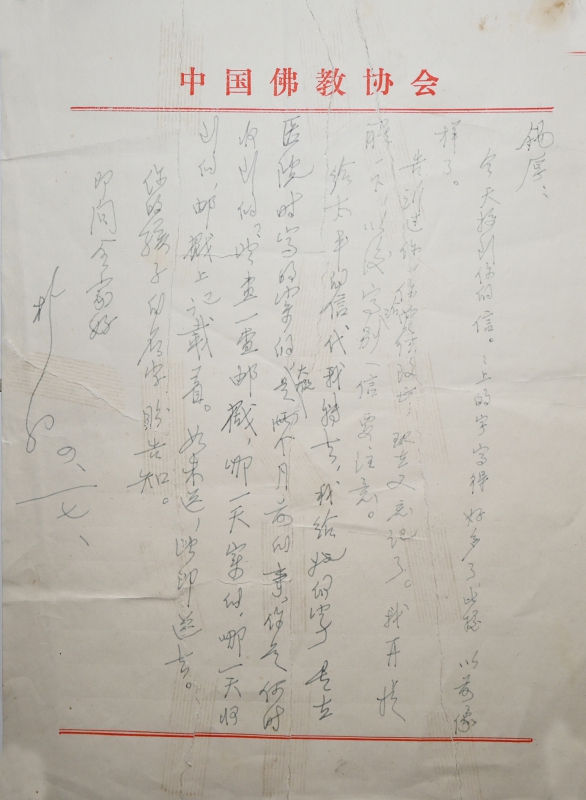 中国佛教协会
锡厚：
今天接到你的信。信上的字写得好多了，比以前像
样了。
告诉过你，信 ，现在又忘记了。我再提
醒一下，以后写别 信要注意。
给 的信代我转去，我给她的字是在
医院时写的，寄的是 两个月前的事，你是何时
收到的，望查一查邮戳，哪一天寄的，哪一天收
到的，邮戳上记载着。如未送， 即送去。
你的孩子的名字盼告知。
即问全家好
朴初
九、一七、